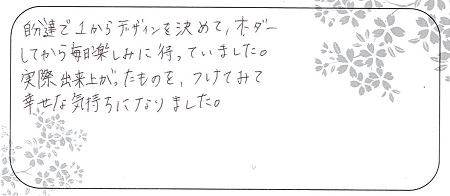 自分達で1からデザインを決めて、オーダー
してから毎日楽しみに待っていました。
実際出来上がったものを、つけてみて
幸せな気持ちになりました。